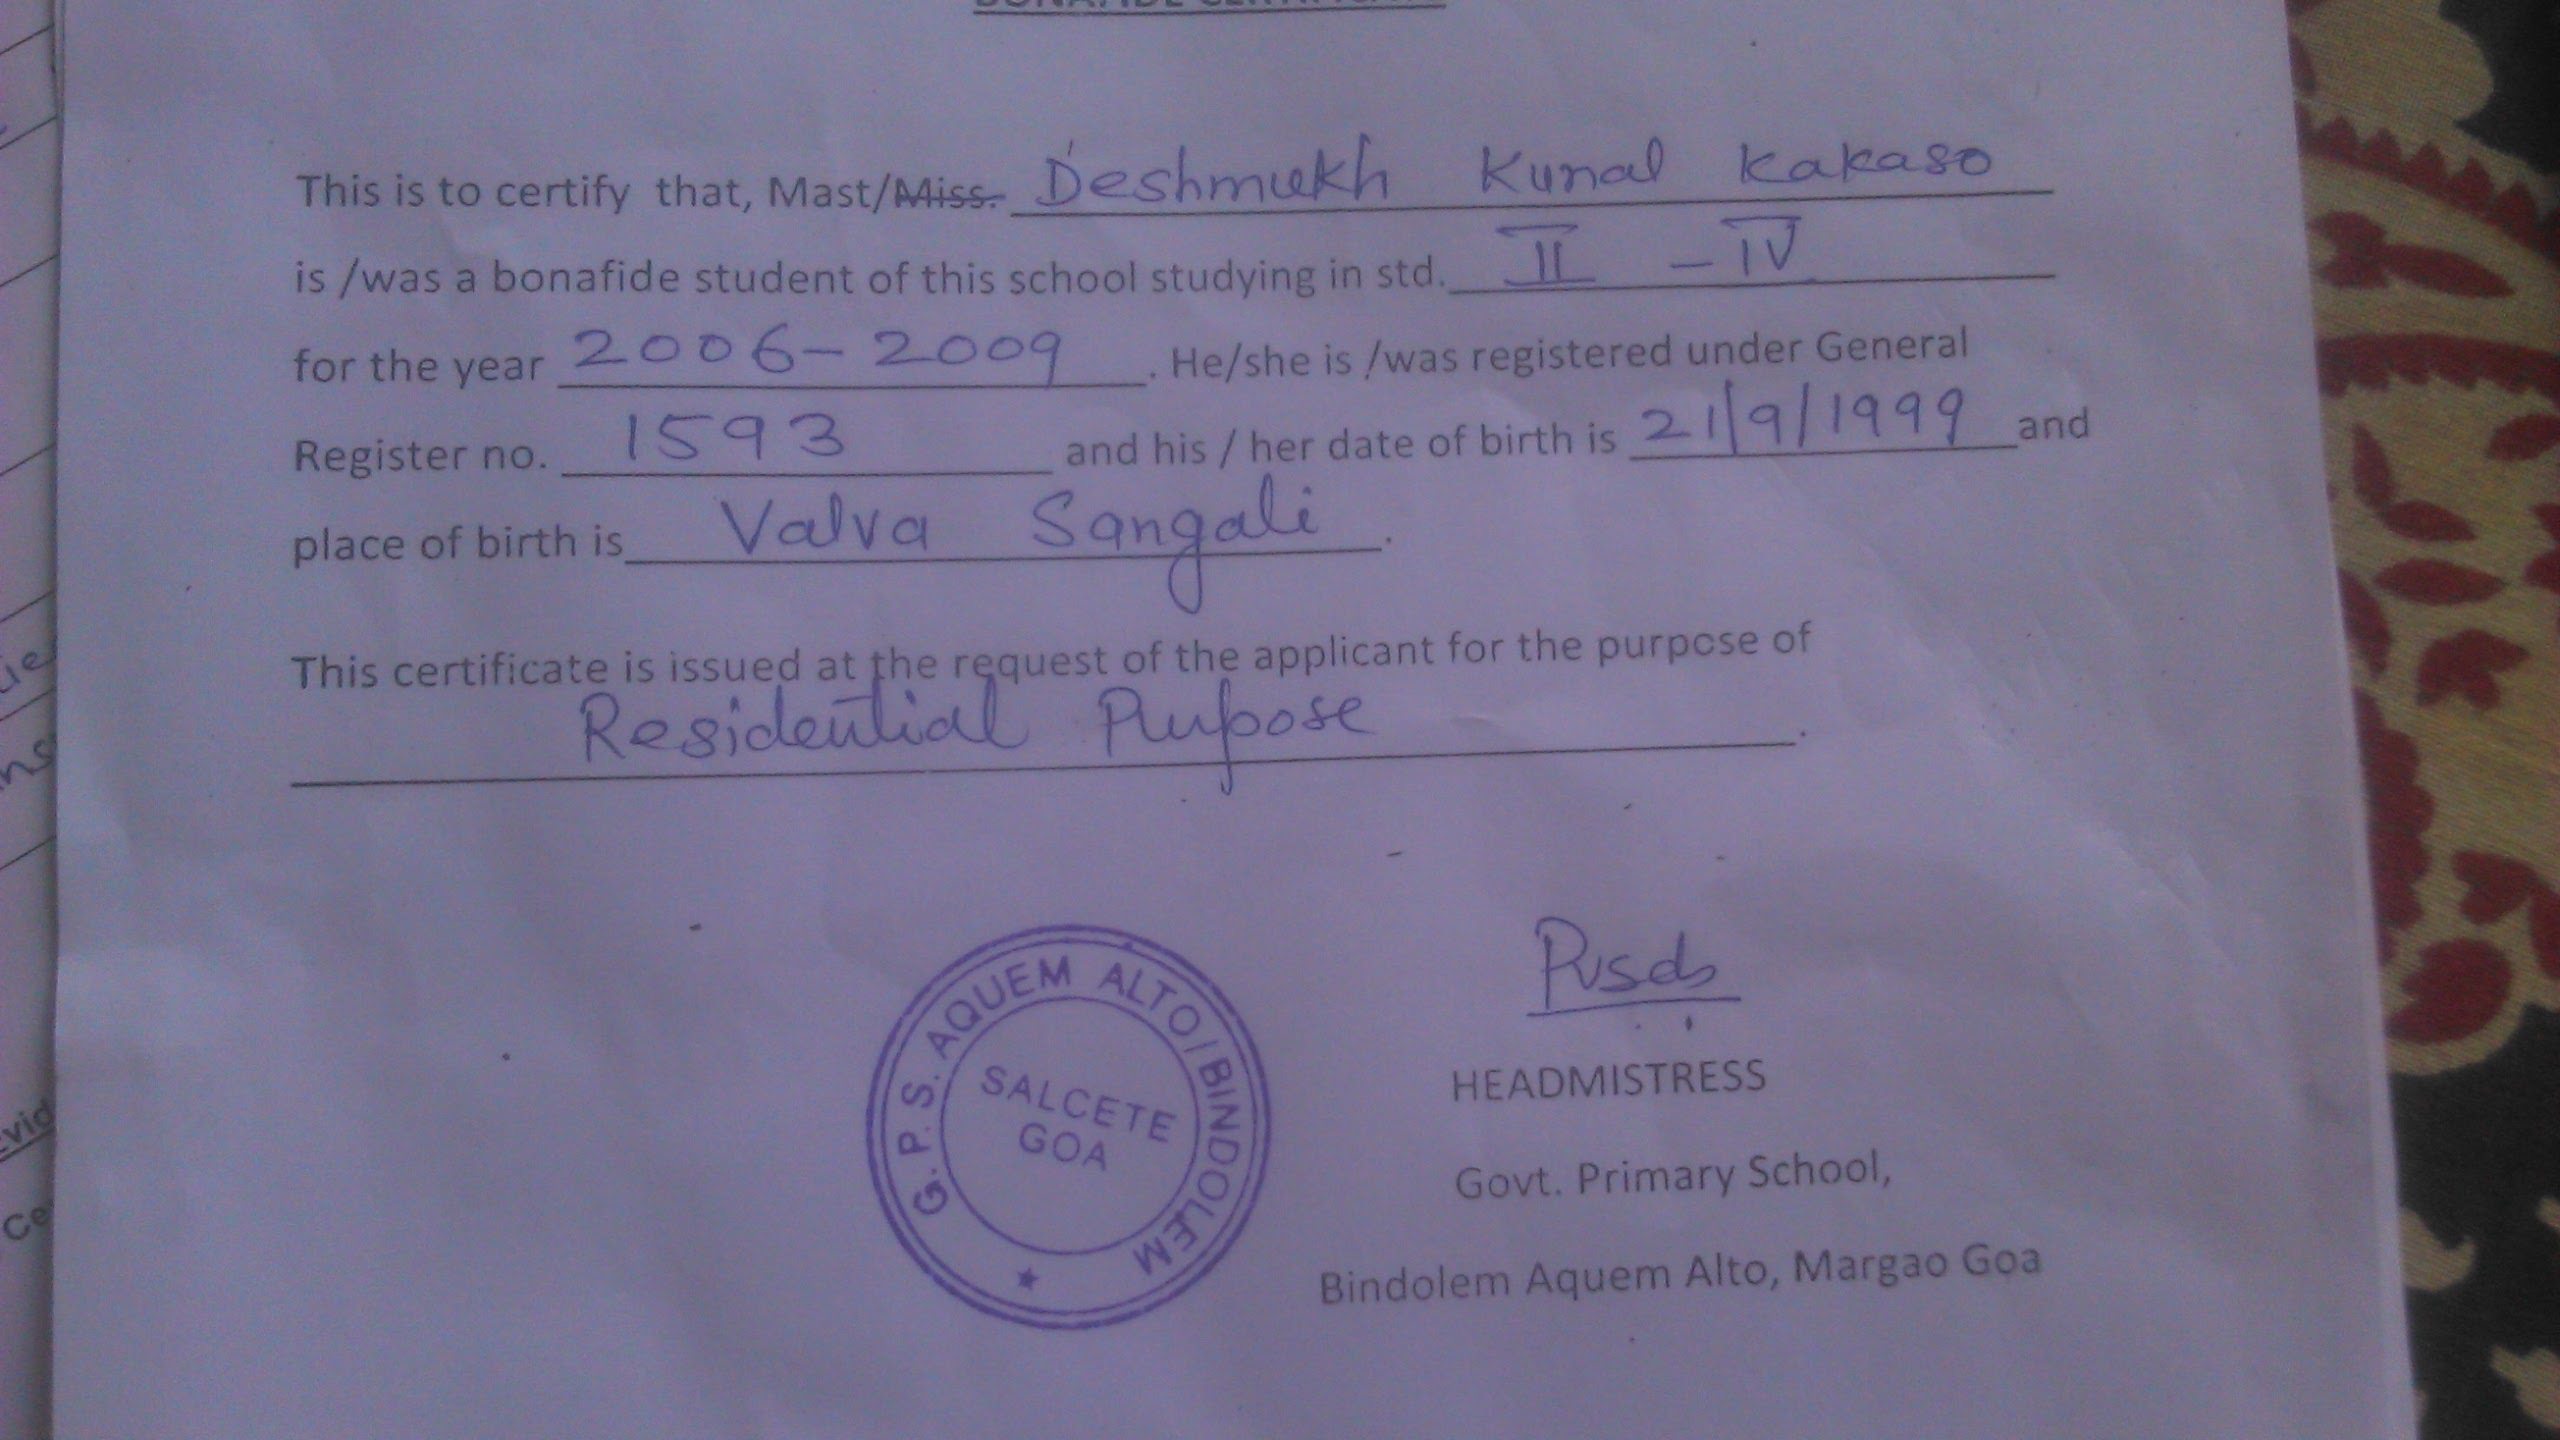 BONAFIDE CERTIFICATE
This is to certify that, Mast/Miss. Deshmukh Kunal Kakaso
is /was a bonafide student of this school studying in std. II - IV
for the year 2006-2009. He/she is /was registered under General
Register no. 1593 and his / her date of birth is 21/9/1999 and
place of birth is Valva Sangali.
This certificate is issued at the request of the applicant for the purpose of
Residential Purpose.
G.P.S. AQUEM ALTO/BINDOLEM
SALCETE
GOA
HEADMISTRESS
Govt. Primary School,
Bindolem Aquem Alto, Margao Goa